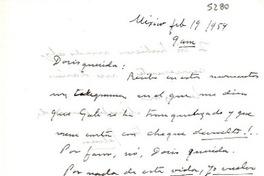 5280
México feb 19/954
9 am
Doris querida:
Recibo en estos momentos
un telegrama en el que me dices
que Gali se ha tranquilizado y que
viene carta con cheque devuelto!!.
Por favor, nó, Doris querida.
Por nada de esta vida, yo